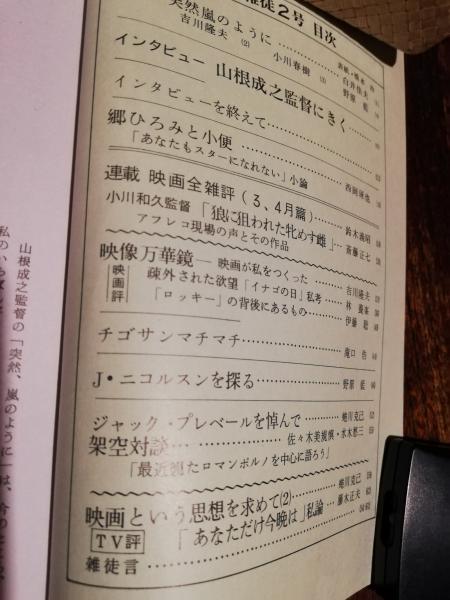 雑徒2号 目次
突然嵐のように
吉川隆夫 (2) 小川春樹 (3) 白井佳夫
野原 藍
インタビュー 山根成之監督にきく
インタビューを終えて
郷ひろみと小便
「あなたもスターになれない」小論 西岡琢也
連載 映画全雑評(3、4月篇) 鈴木義昭
小川和久監督「狼に狙われた牝めす雌」 斎藤正七
アフレコ現場の声とその作品
映像万華鏡―映画が私をつくった 吉川隆夫
映画評 疎外された欲望「イナゴの日」私考 林 養峯
「ロッキー」の背後にあるもの 伊藤 聡
チゴサンマチマチ 滝口 浩
J・ニコルスンを探る 野原 藍
ジャック・プレベールを悼んで 蜷川克己 52
架空対談 佐々木美規慎・水木哲三
「最近観たロマンポルノを中心に語ろう」
映画という思想を求めて(2) 蜷川克己
TV評 「あなただけ今晩は」私論 藤木正夫
雑徒言
山根成之監督の「突然、嵐のように」は、